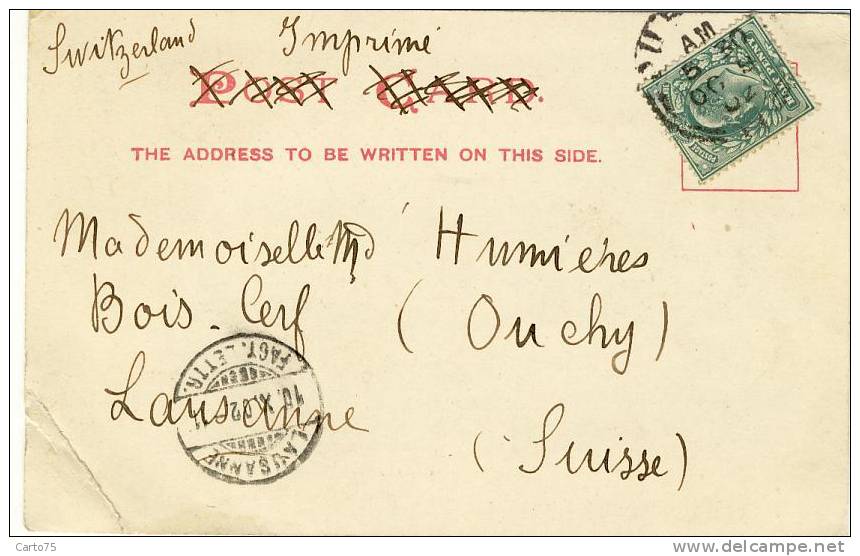 Switzerland Imprimé
POST CARD.
THE ADDRESS TO BE WRITTEN ON THIS SIDE.
AM
5
OC
02
Mademoiselle Md Humières
Bois-Cerf (Ouchy)
Lausanne
(Suisse)
LAUSANNE
10.X.02
FACT. LETTR.
Carto75
delcampe.net